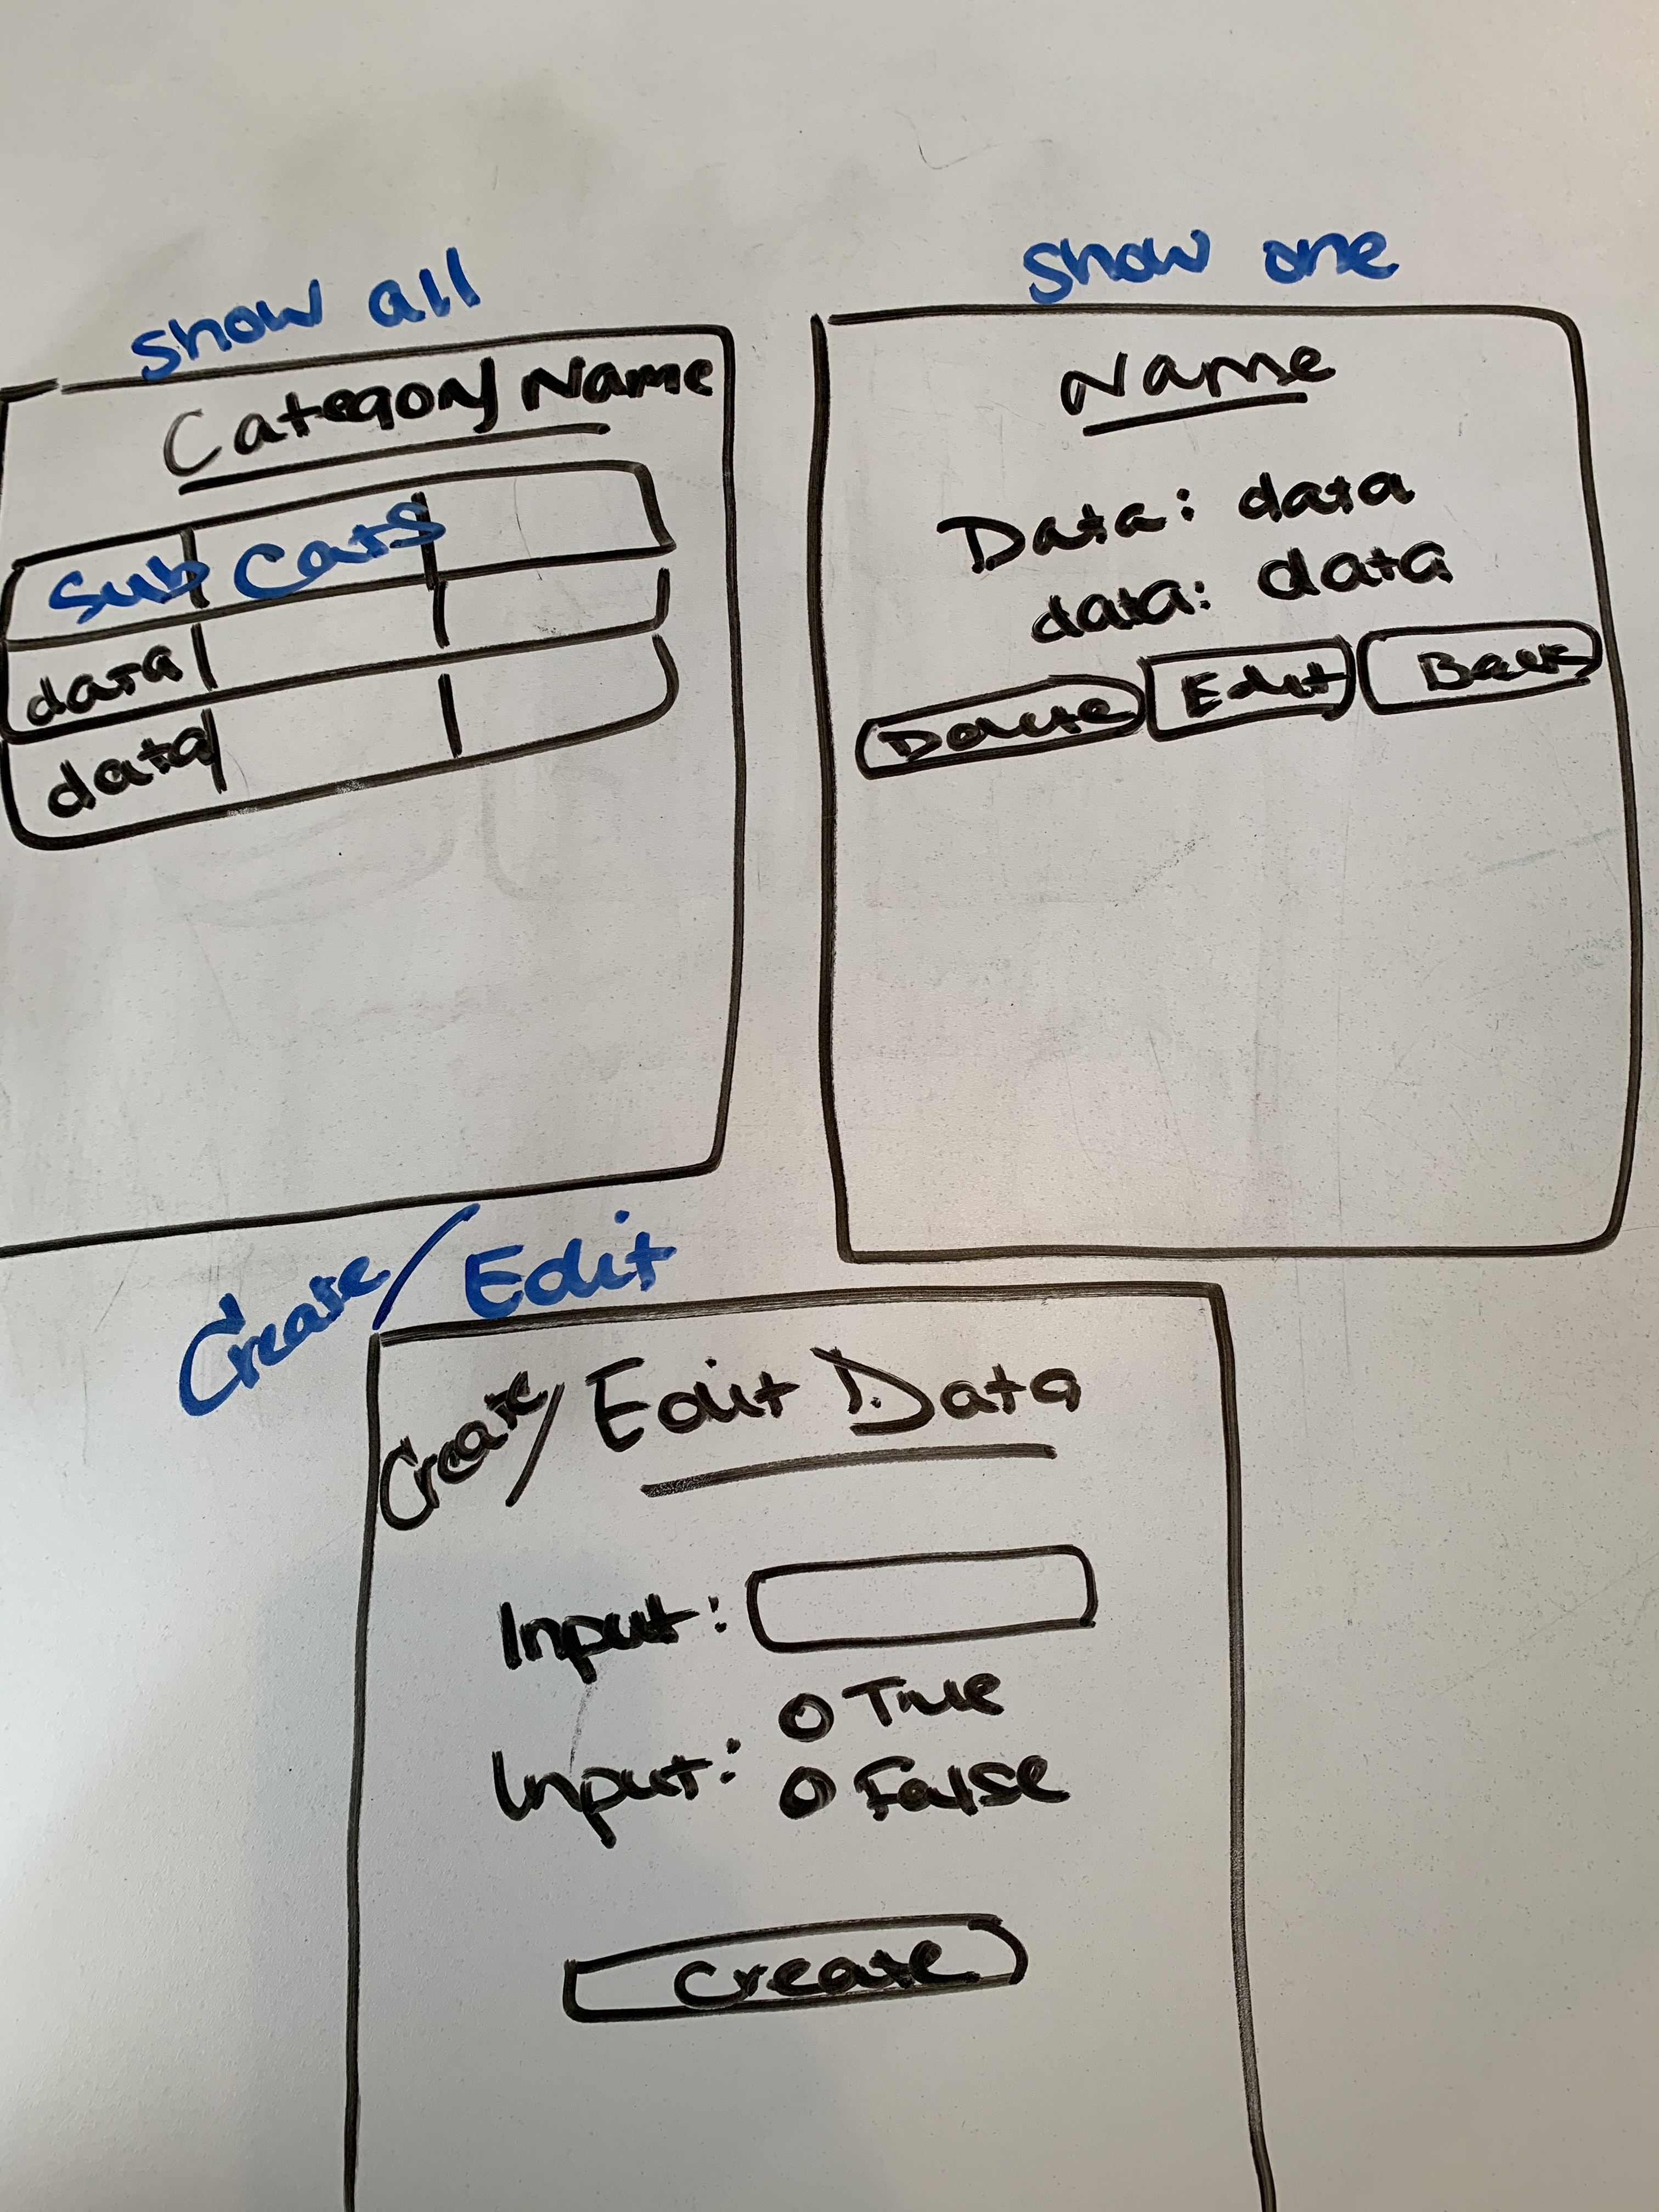 show all
Category Name
Sub Cats
data
data
show one
Name
Data: data
data: data
Delete Edit Back
Create/Edit
Create/Edit Data
Input:
Input: True
False
Create